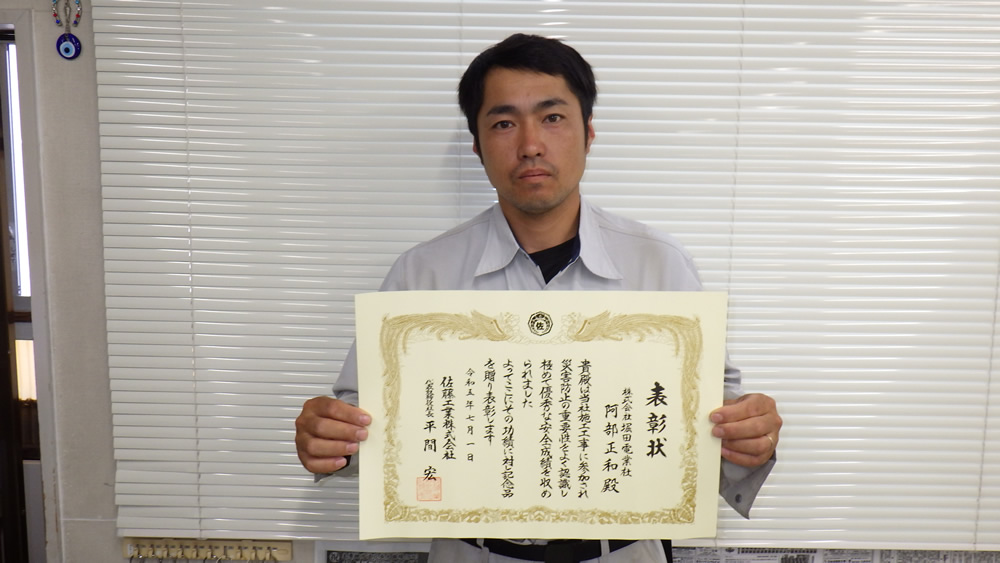 佐
表彰状
株式会社堀田電業社
阿部正和殿
貴殿は当社施工工事に参加され
災害防止の重要性をよく認識し
極めて優秀な安全成績を収め
られました
よってここにその功績に対し記念品
を贈り表彰します
令和五年七月一日
佐藤工業株式会社
代表取締役社長 平間宏